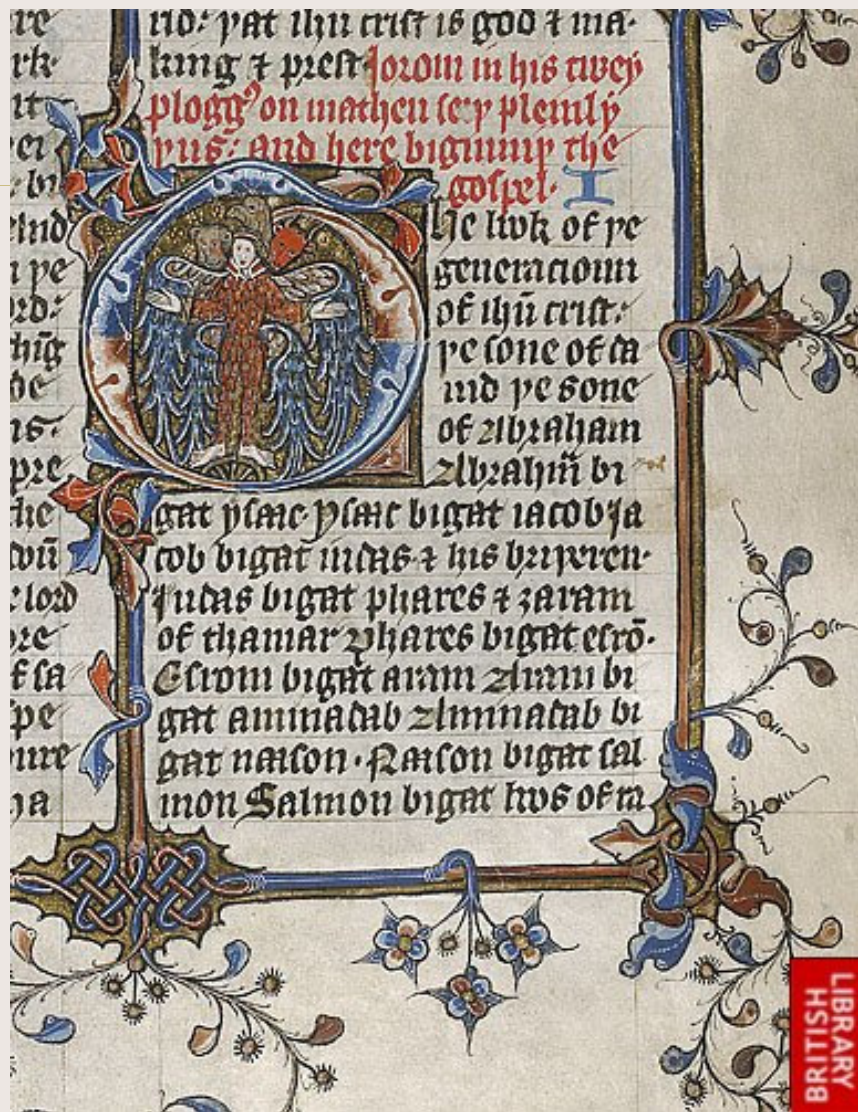 re
rk·
it
er
bi
lend
n þe
ord:
hīg
be
is·
pre
he
wū
lord
re
f sa
pe
ure
ha
rid: þat ihū crist is god & ma·
king & prest· Jerom in his twey
plogg⁹ on matheu seyþ pleinly
þus: and here biginnyþ the
gospel· I
The book of þe
generacioun
of ihū crist:
þe sone of da
uid þe sone
of Abraham
Abrahā bi
gat ysaac· ysaac bigat iacob Ja
cob bigat iudas & his briþeren·
Judas bigat phares & zaram
of thamar phares bigat esrō·
Esrom bigat aram Aram bi
gat aminadab Aminadab bi
gat nason· Nason bigat sal
mon Salmon bigat boos of ra
BRITISH
LIBRARY